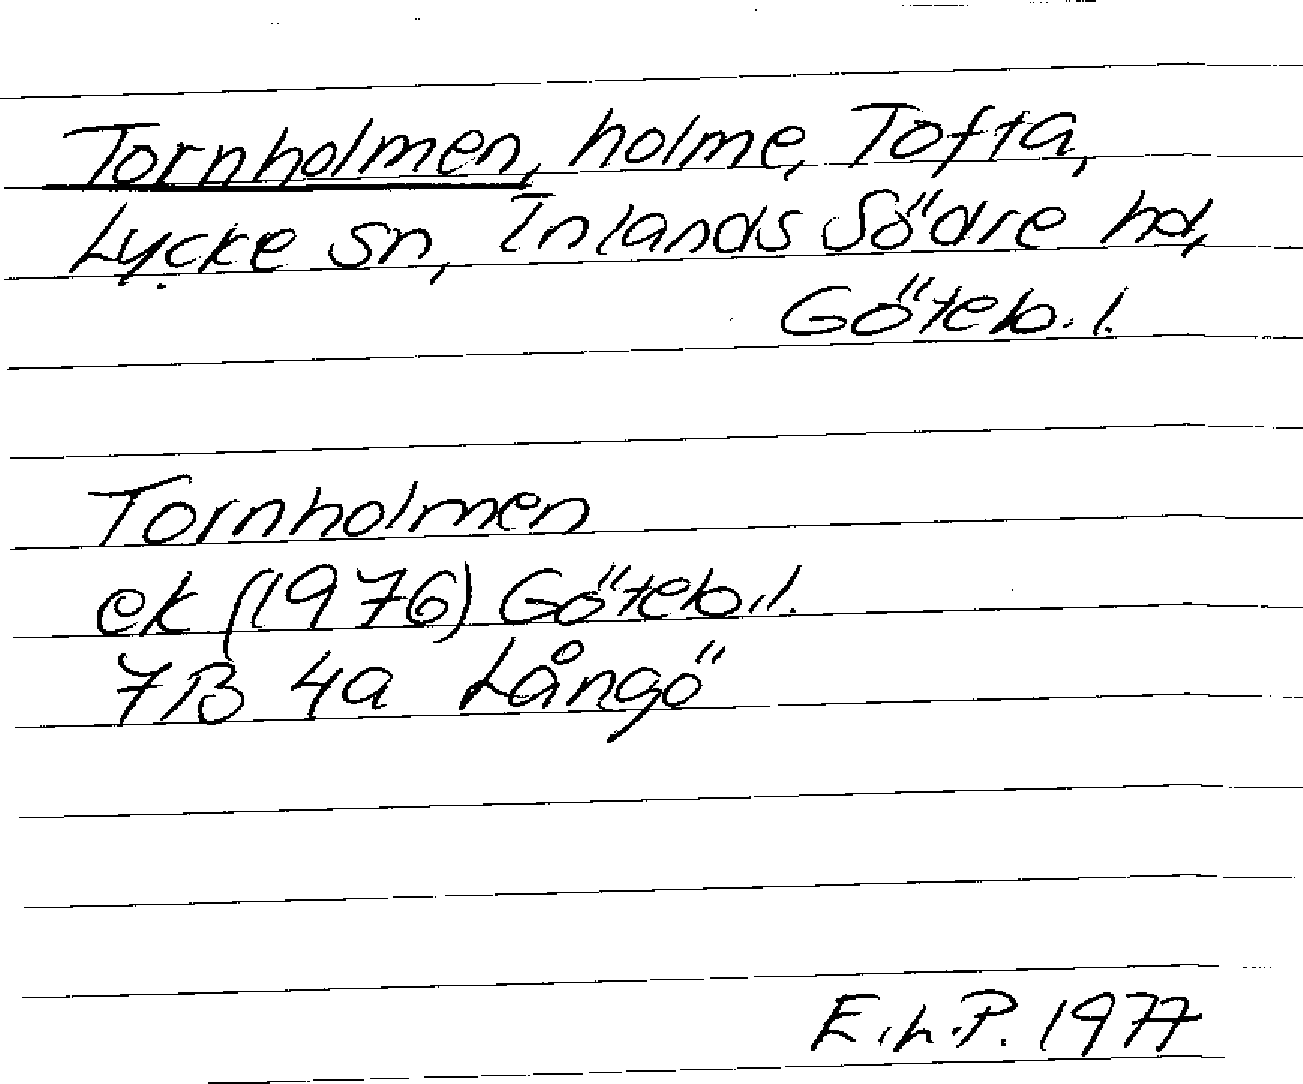 Tornholmen, holme, Tofta,
Lycke sn, Inlands Södre hd,
Göteb. l.
Tornholmen
ek (1976) Göteb.l.
7B 4a Långö
E.L.P. 1977